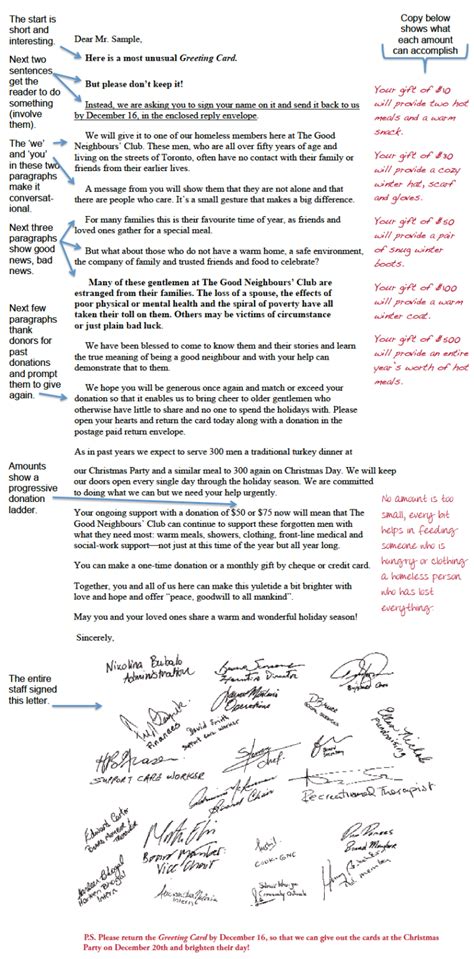 The start is
short and
interesting.
Next two
sentences,
get the
reader to do
something
(involve
them).
The 'we'
and 'you'
in these two
paragraphs
make it
conversat-
ional.
Next three
paragraphs
show good
news, bad
news.
Next few
paragraphs
thank
donors for
past
donations
and prompt
them to give
again.
Amounts
show a
progressive
donation
ladder.
The entire
staff signed
this letter.
Dear Mr. Sample,
Here is a most unusual Greeting Card.
But please don't keep it!
Instead, we are asking you to sign your name on it and send it back to us
by December 16, in the enclosed reply envelope.
We will give it to one of our homeless members here at The Good
Neighbours' Club. These men, who are all over fifty years of age and
living on the streets of Toronto, often have no contact with their family or
friends from their earlier lives.
A message from you will show them that they are not alone and that
there are people who care. It's a small gesture that makes a big difference.
For many families this is their favourite time of year, as friends and
loved ones gather for a special meal.
But what about those who do not have a warm home, a safe environment,
the company of family and trusted friends and food to celebrate?
Many of these gentlemen at The Good Neighbours' Club are
estranged from their families. The loss of a spouse, the effects of
poor physical or mental health and the spiral of poverty have all
taken their toll on them. Others may be victims of circumstance
or just plain bad luck.
We have been blessed to come to know them and their stories and learn
the true meaning of being a good neighbour and with your help can
demonstrate that to them.
We hope you will be generous once again and match or exceed your
donation so that it enables us to bring cheer to older gentlemen who
otherwise have little to share and no one to spend the holidays with. Please
open your hearts and return the card today along with a donation in the
postage paid return envelope.
As in past years we expect to serve 300 men a traditional turkey dinner at
our Christmas Party and a similar meal to 300 again on Christmas Day. We will keep
our doors open every single day through the holiday season. We are committed
to doing what we can but we need your help urgently.
Your ongoing support with a donation of $50 or $75 now will mean that The
Good Neighbours' Club can continue to support these forgotten men with
what they need most: warm meals, showers, clothing, front-line medical and
social-work support—not just at this time of the year but all year long.
You can make a one-time donation or a monthly gift by cheque or credit card.
Together, you and all of us here can make this yuletide a bit brighter with
love and hope and offer "peace, goodwill to all mankind".
May you and your loved ones share a warm and wonderful holiday season!
Sincerely,
Copy below
shows what
each amount
can accomplish
Your gift of $10
will provide two hot
meals and a warm
snack.
Your gift of $30
will provide a cozy
winter hat, scarf
and gloves.
Your gift of $50
will provide a pair
of snug winter
boots.
Your gift of $100
will provide a warm
winter coat.
Your gift of $500
will provide an entire
year's worth of hot
meals.
No amount is too
small, every bit
helps in feeding
someone who is
hungry or clothing
a homeless person
who has lost
everything.
Administration
Executive Director
Operations
Finances
David Frith
Support Care Worker
Fundraising
Chef.
SUPPORT CARE WORKER
Board Chair
Recreational Therapist
Edward Carter
Board Member
Vice Chair
P.S. Please return the Greeting Card by December 16, so that we can give out the cards at the Christmas
Party on December 20th and brighten their day!